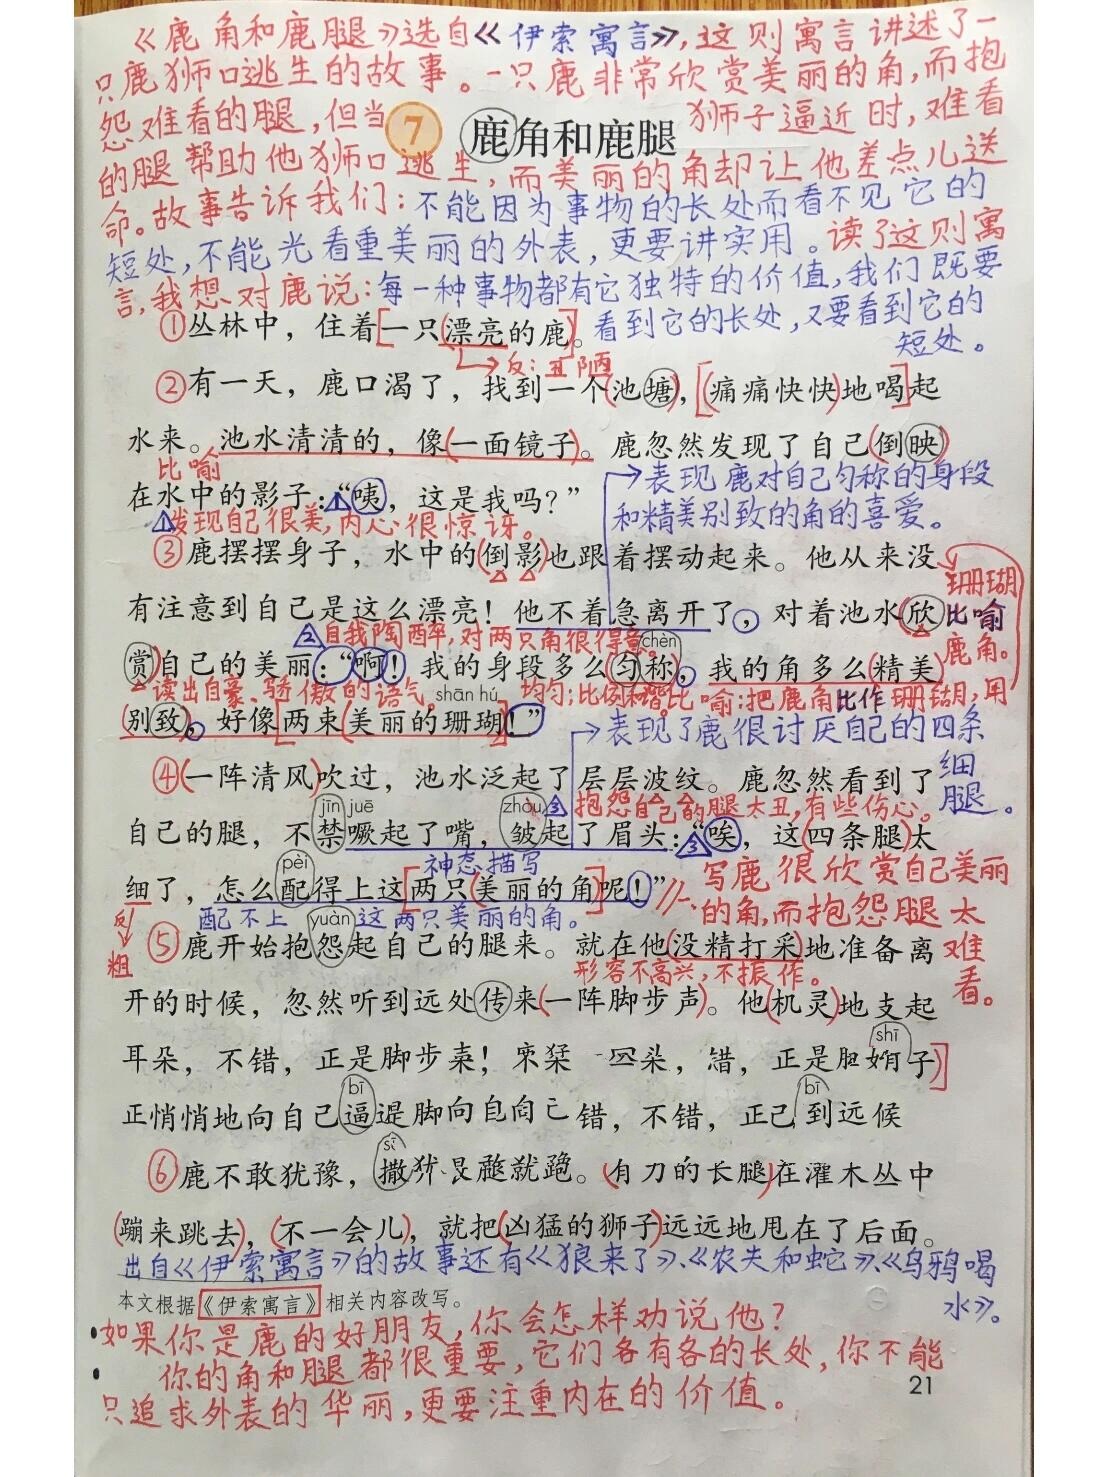 《鹿角和鹿腿》选自《伊索寓言》，这则寓言讲述了一
只鹿狮口逃生的故事。一只鹿非常欣赏美丽的角，而抱
怨难看的腿，但当狮子逼近时，难看
7 鹿角和鹿腿
的腿帮助他狮口逃生，而美丽的角却让他差点儿送
命。故事告诉我们：不能因为事物的长处而看不见它的
短处，不能光看重美丽的外表，更要讲实用。读了这则寓
言，我想对鹿说：每一种事物都有它独特的价值，我们既要
看到它的长处，又要看到它的
短处。
①丛林中，住着一只漂亮的鹿。
反：丑陋
②有一天，鹿口渴了，找到一个池塘，痛痛快快地喝起
水来。池水清清的，像一面镜子。鹿忽然发现了自己倒映
比喻
表现鹿对自己匀称的身段
和精美别致的角的喜爱。
在水中的影子：“咦，这是我吗？”
1发现自己很美，内心很惊讶。
③鹿摆摆身子，水中的倒影也跟着摆动起来。他从来没
珊瑚
比喻
鹿角。
有注意到自己是这么漂亮！他不着急离开了，对着池水欣
2自我陶醉，对两只角很得意。
chèn
赏自己的美丽：“啊！我的身段多么匀称，我的角多么精美
读出自豪、骄傲的语气。
shān hú
均匀；比例和谐。
比喻：把鹿角比作珊瑚，用
别致，好像两束美丽的珊瑚！”
表现了鹿很讨厌自己的四条
细
腿。
④一阵清风吹过，池水泛起了层层波纹。鹿忽然看到了
jīn juē
zhòu
3抱怨自己的腿太丑，有些伤心。
自己的腿，不禁噘起了嘴，皱起了眉头：“唉，这四条腿太
pèi
神态描写
细了，怎么配得上这两只美丽的角呢！”
反
粗
配不上这两只美丽的角。
写鹿很欣赏自己美丽
的角，而抱怨腿太
难
看。
yuàn
⑤鹿开始抱怨起自己的腿来。就在他没精打采地准备离
形容不高兴，不振作。
开的时候，忽然听到远处传来一阵脚步声。他机灵地支起
shī
耳朵，不错，正是脚步
正是
子
bī
bī
正悄悄地向自己逼
脚向自
错，不错，正己到远候
⑥鹿不敢犹豫，撒
就跑。有
的长腿在灌木丛中
蹦来跳去，不一会儿，就把凶猛的狮子远远地甩在了后面。
出自《伊索寓言》的故事还有《狼来了》、《农夫和蛇》、《乌鸦喝
水》。
本文根据《伊索寓言》相关内容改写。
如果你是鹿的好朋友，你会怎样劝说他？
你的角和腿都很重要，它们各有各的长处，你不能
只追求外表的华丽，更要注重内在的价值。
21